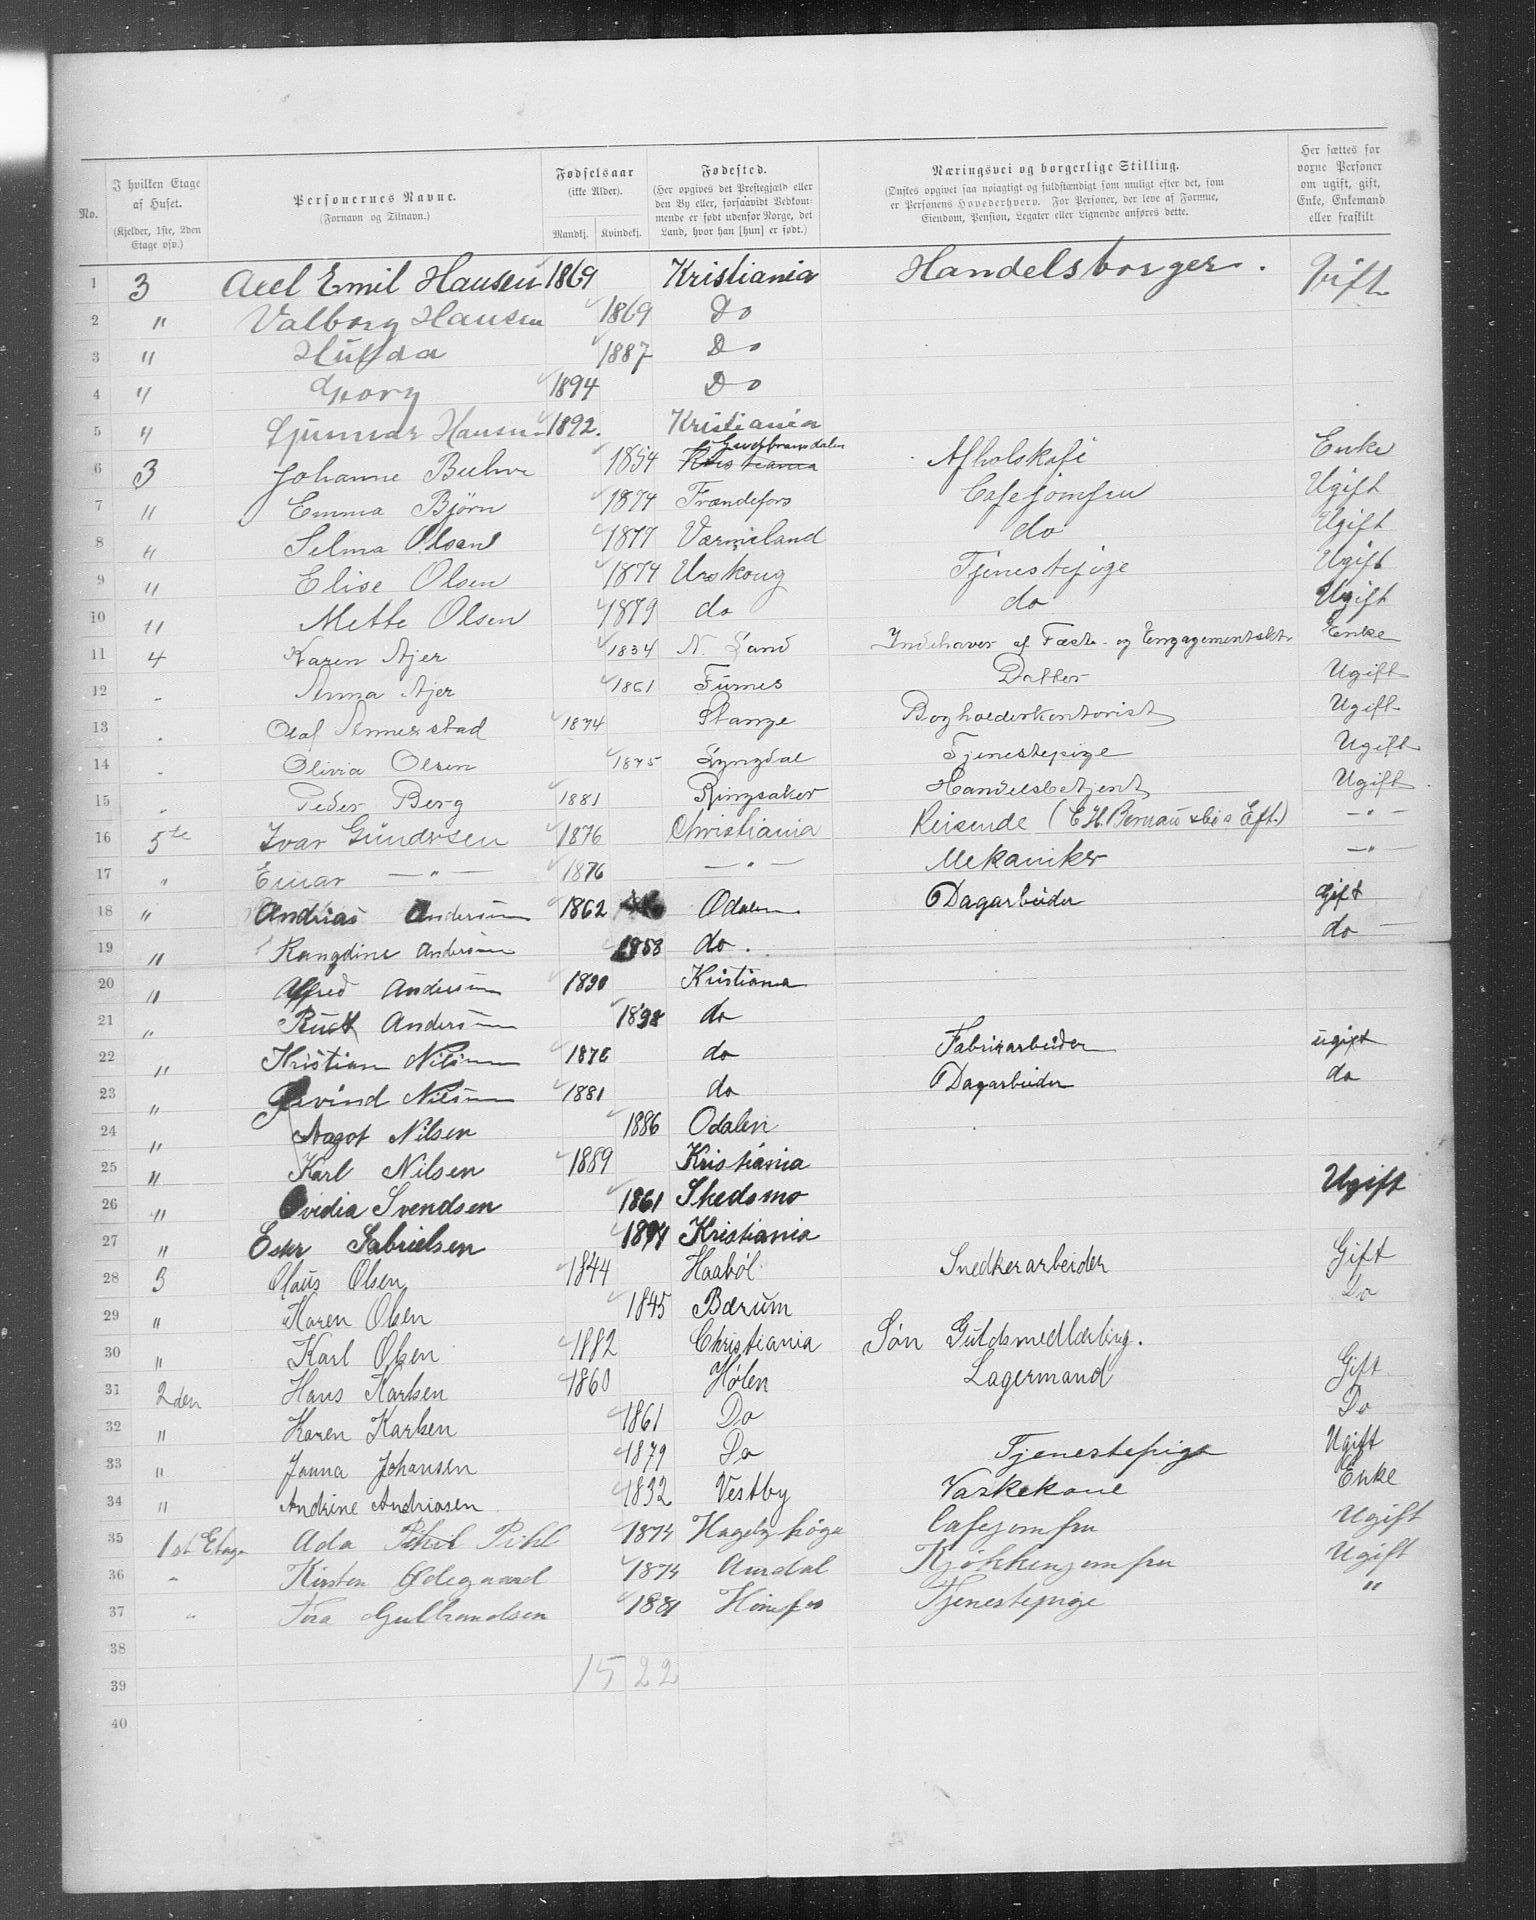 No. | I hvilken Etage af Huset. (Kjelder, 1ste, 2den Etage osv.) | Personernes Navne. (Fornavn og Tilnavn.) | Fødselsaar (ikke Alder). Mandkj. | Kvindekj. | Fødested. (Her opgives det Prestegjæld eller den By eller, forsaavidt Vedkommende er født udenfor Norge, det Land, hvor han [hun] er født.) | Næringsvei og borgerlige Stilling. (Ønskes opgivet saa nøiagtigt og fuldstændigt som muligt efter det, som er Personens Hovederhverv. For Personer, der leve af Formue, Eiendom, Pension, Legater eller Lignende anføres dette. | Her sættes for voxne Personer om ugift, gift, Enke, Enkemand eller fraskilt
1 3 Axel Emil Hansen 1869 Kristiania Handelsborger. Gift
2 " Valborg Hansen 1869 Do
3 " Hulda 1887 Do
4 " Georg 1894 Do
5 " Gunnar Hansen 1892. Kristiania
6 3 Johanne 1854 Kristiania Gudbrandsdalen Afholskafé Enke
7 " Emma Bjørn 1874 Cafejomfru Ugift
8 " Selma Olsen 1877 Vermeland do Ugift
9 " Elise Olsen 1874 Urskoug Tjenestepige Ugift
10 " Mette Olsen 1879 do do Ugift
11 4 Karen Ajer 1834 N. Land Indehaver af Fæste- og Engagementsktr Enke
12 " Anna Ajer 1861 Furnes Datter Ugift
13 " Olaf Annerstad 1874 Stange Bogholderkontorist Ugift
14 " Olivia Olsen 1875 Lyngdal Tjenestepige Ugift
15 " Peder Berg 1881 Ringsaker Handelsbetjent Ugift
16 5te Ivar Gundersen 1876 Christiania Reisende (E.H. Eft.) — " —
17 " Einar — " — 1876 — " — Mekaniker — " —
18 " Andreas Andersen 1862 Odalen Dagarbeider Gift
19 " Rangdine Andersen 1858 do. do
20 " Alfred Andersen 1890 Kristiania
21 " Ruth Andersen 1898 do
22 " Kristian Nilsen 1876 do Fabrikarbeider ugift
23 " Øivind Nilsen 1881 do Dagarbeider do
24 " Aagot Nilsen 1886 Odalen
25 " Karl Nilsen 1889 Kristiania
26 " Ovidia Svendsen 1861 Skedsmo Ugift
27 " Ester Gabrielsen 1894 Kristiania
28 3 Olaus Olsen 1844 Haabøl Snedkerarbeider Gift
29 " Karen Olsen 1845 Bærum Do
30 " Karl Olsen 1882 Christiania Søn Guldsmedlærling.
31 2den Hans Karlsen 1860 Hølen Lagermand Gift
32 " Karen Karlsen 1861 Do Do
33 " Janna Johansen 1879 Do Tjenestepige Ugift
34 " Andrine Andriasen 1832 Vestby Vaskekone Enke
35 1st Etage Ada Pihl 1874 Cafejomfru Ugift
36 " Kirsten Ødegaard 1874 Aurdal Kjøkkenjomfru Ugift
37 " Tora Gulbrandsen 1881 Hønefos Tjenestepige "
38
39 15 22
40